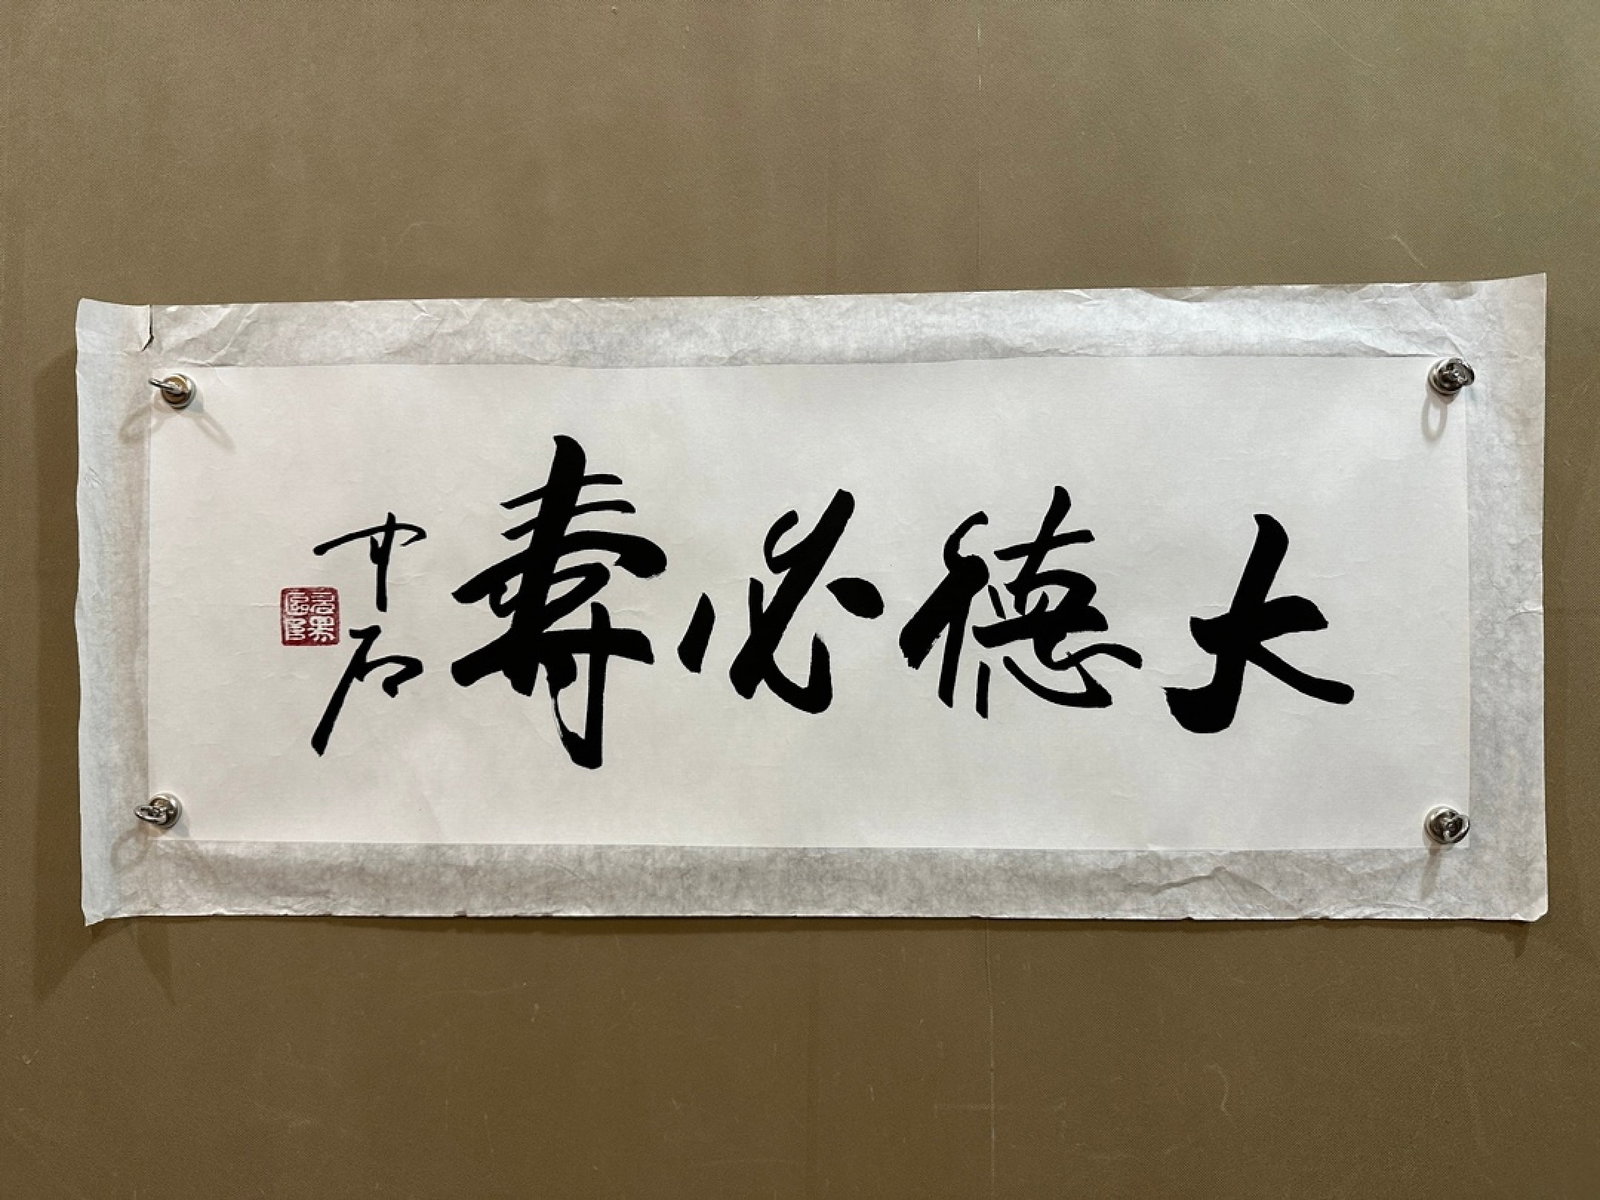 大德必壽
中石